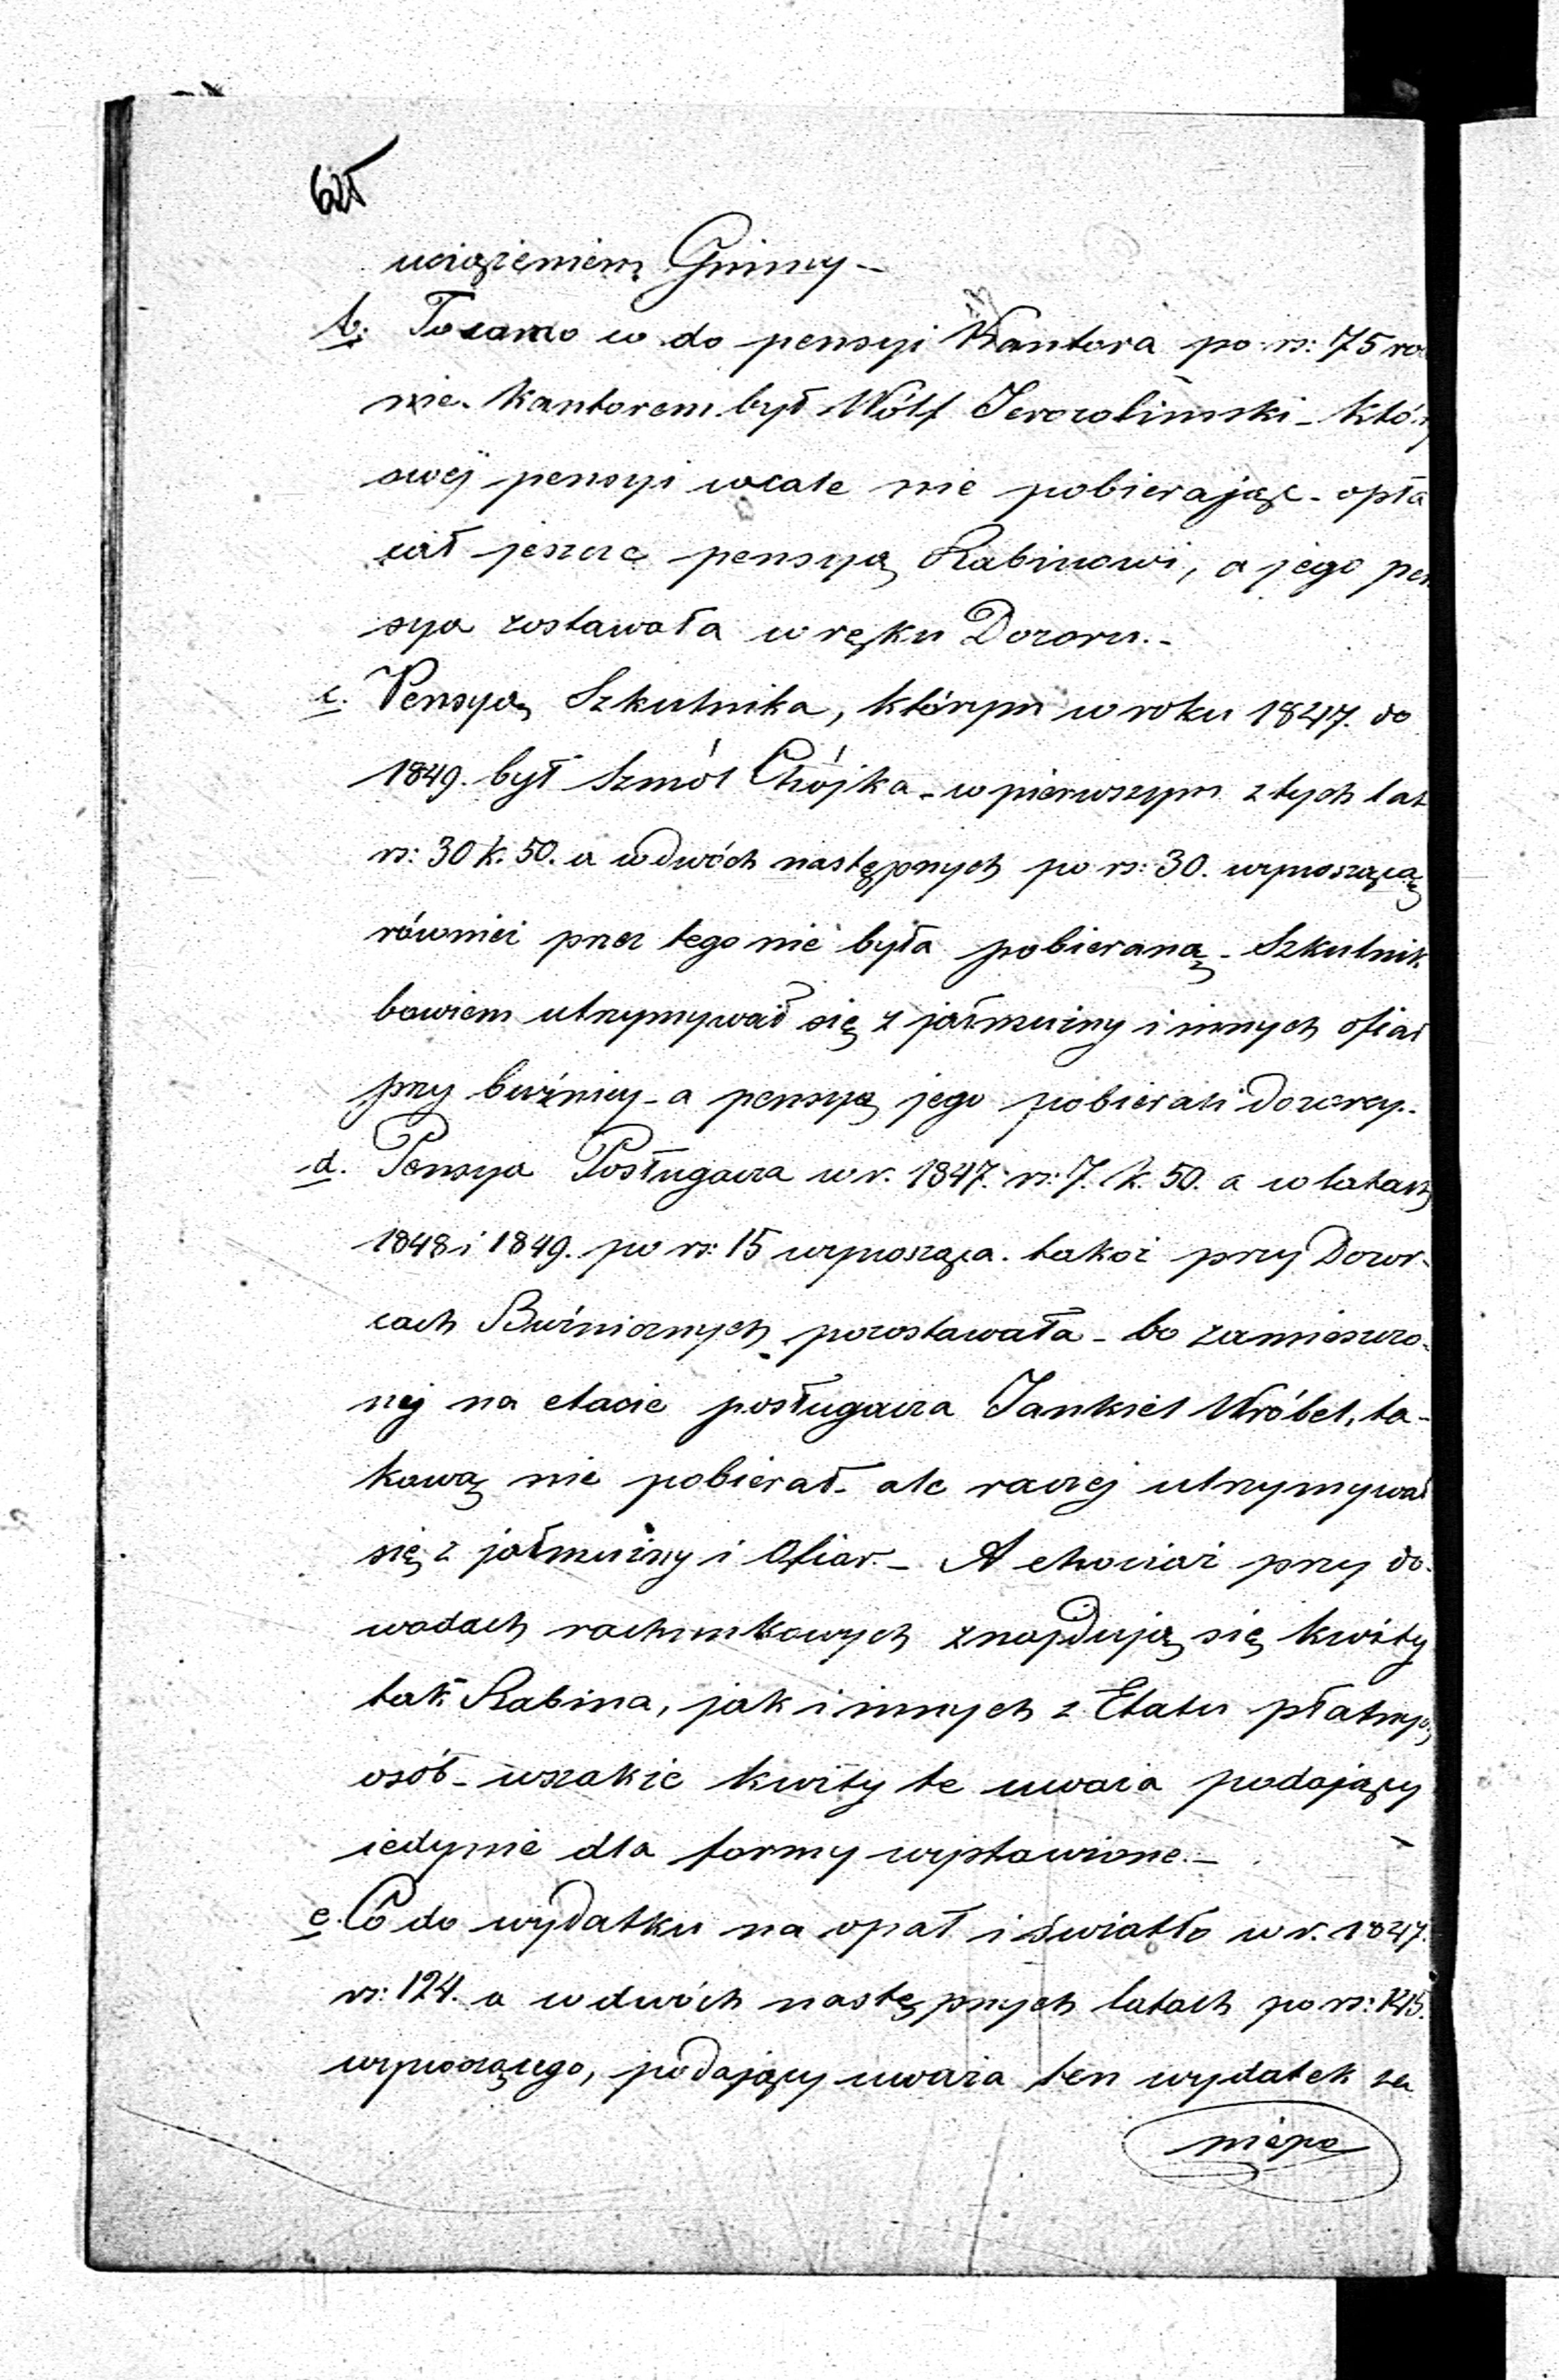 uciążeniem Gminy –
b. Tosamo co do pensyi Kantora po rs: 75 ro
nie. Kantorem był Wólf Jerozolimski – któ
swej pensyi wcale nie pobierając – opła
cał jeszcze pensyą Rabinowi, a jego pen
sya zostawała w ręku Dozoru. –
c. Pensya Szkulnika, którym w roku 1847. do
1849. był Szmól Chójka – w pierwszym z tych lat
rs: 30 k. 50. a w dwóch następnych po rs: 30. wynosząca
również przez tego nie była pobieraną – Szkulnik
bowiem utrzymywał się z jałmużny i innych ofiar
przy bużnicy – a pensyą jego pobierali dozorcy. –
d. Pensya Posługacza w r. 1847. rs: 7. k. 50. a w latach
1848 i 1849. po rs: 15 wynosząca. takoż przy Dozor-
cach Bużnicznych pozostawała – bo zamieszczo-
nej na etacie posługacza Jankiel Wróbel, ta-
kową nie pobierał – ale raczej utrzymywał
się z jałmużny i Ofiar. – A chociaż przy do-
wodach rachunkowych znajdują się kwity
tak Rabina, jak i innych z Etatu płatnych
osób – wszakże kwity te uważa podający
jedynie dla formy wystawione. –
e. Co do wydatku na opał i światło w r. 1847.
rs: 124. a w dwóch następnych latach po rs: 145.
wynoszącego, podający uważa ten wydatek za
niepo